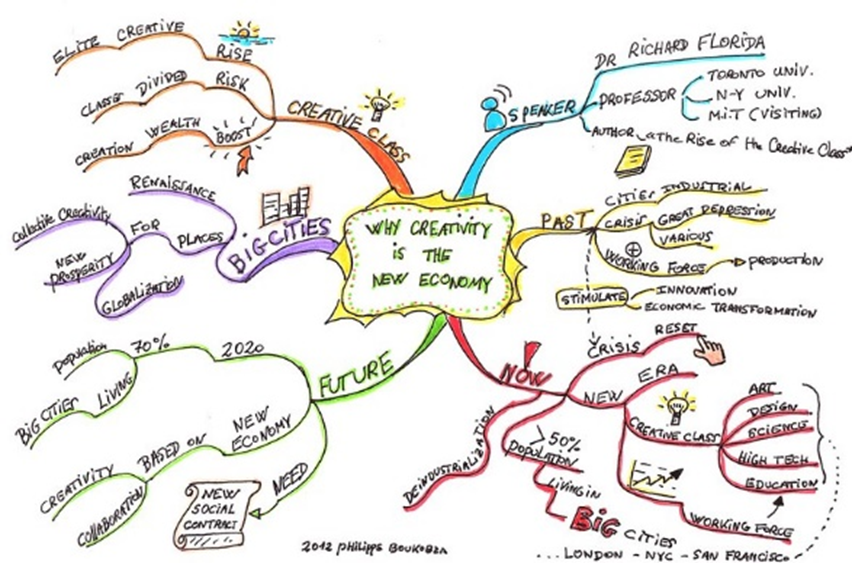 WHY CREATIVITY
IS THE
NEW ECONOMY
SPEAKER
DR RICHARD FLORIDA
PROFESSOR
TORONTO UNIV.
N-Y UNIV.
M.I.T (VISITING)
AUTHOR "The Rise of the Creative Class"
PAST
CITIES INDUSTRIAL
CRISIS GREAT DEPRESSION
VARIOUS
WORKING FORCE
PRODUCTION
STIMULATE
INNOVATION
ECONOMIC TRANSFORMATION
NOW
CRISIS RESET
NEW ERA
CREATIVE CLASS
ART
DESIGN
SCIENCE
HIGH TECH
EDUCATION
WORKING FORCE
>50%
POPULATION
LIVING IN
BIG CITIES
...LONDON - NYC - SAN FRANCISCO
DEINDUSTRIALIZATION
FUTURE
2020
70%
POPULATION
LIVING
BIG CITIES
NEW
ECONOMY
BASED ON
CREATIVITY
COLLABORATION
NEED
NEW
SOCIAL
CONTRACT
BIG CITIES
RENAISSANCE
PLACES
FOR
Collective Creativity
NEW
PROSPERITY
GLOBALIZATION
CREATIVE CLASS
RISE
CREATIVE
ELITE
RISK
DIVIDED
CLASSES
BOOST
WEALTH
CREATION
2012 PHILIPPE BOUKOBZA